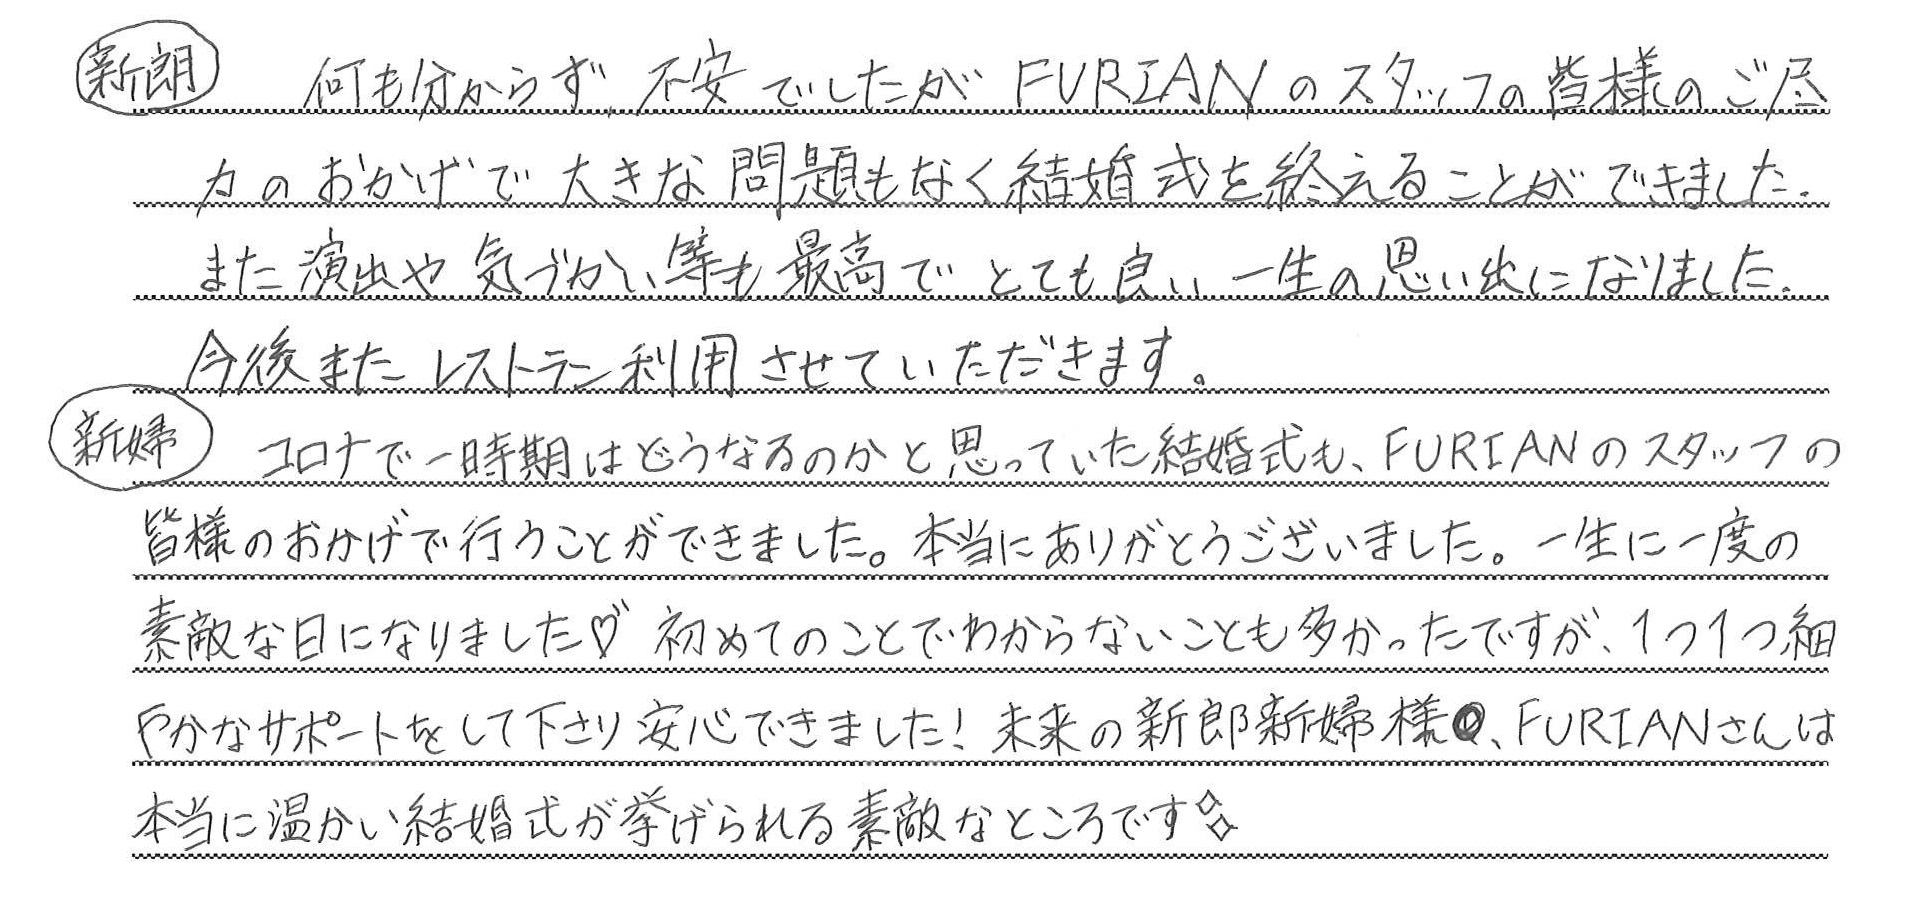 新朗 何も分からず、不安でしたが FURIANのスタッフの皆様のご尽
力のおかげで大きな問題もなく結婚式を終えることができました。
また演出や気づかい等も最高でとても良い一生の思い出になりました。
今後またレストラン利用させていただきます。
新婦 コロナで一時期はどうなるのかと思っていた結婚式も、FURIANのスタッフの
皆様のおかげで行うことができました。本当にありがとうございました。一生に一度の
素敵な日になりました♡ 初めてのことでわからないことも多かったですが、1つ1つ細
やかなサポートをして下さり安心できました!未来の新郎新婦様、FURIANさんは
本当に温かい結婚式が挙げられる素敵なところです